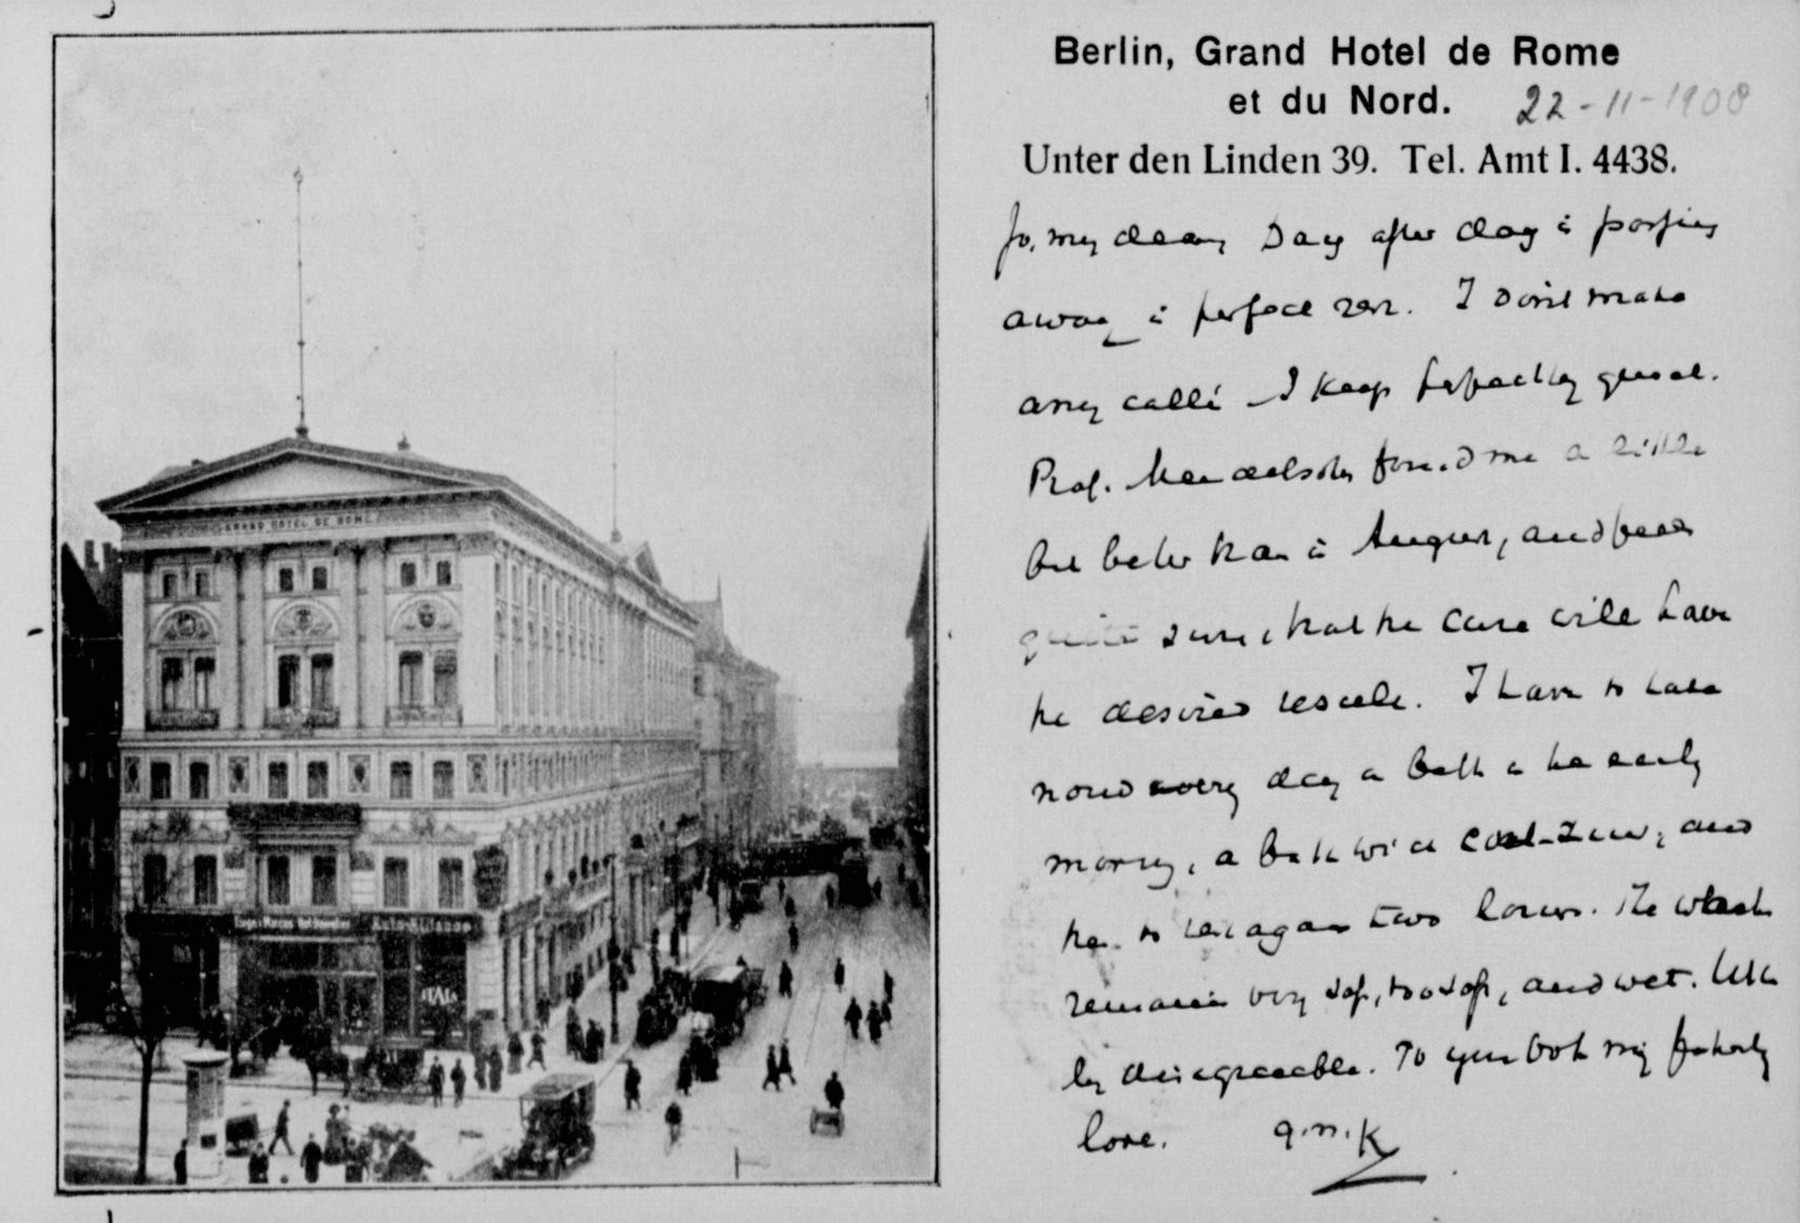 GRAND HOTEL DE ROME
ITALA
Berlin, Grand Hotel de Rome
et du Nord. 22-11-1908
Unter den Linden 39. Tel. Amt I. 4438.
Jo, my deary Day after day is passing
away in perfect rest. I don't make
any calls I keep perfectly quiet.
Prof. Mendelsohn found me a little
bit better than in August, and feels
quite sure, that the cure will have
the desired result. I have to take
now every day a bath in the early
morning, a bath with and
then to rest again two hours. The weather
remains very soft, too soft, and wet. Utter
ly disagreeable. To you both my fatherly
love.